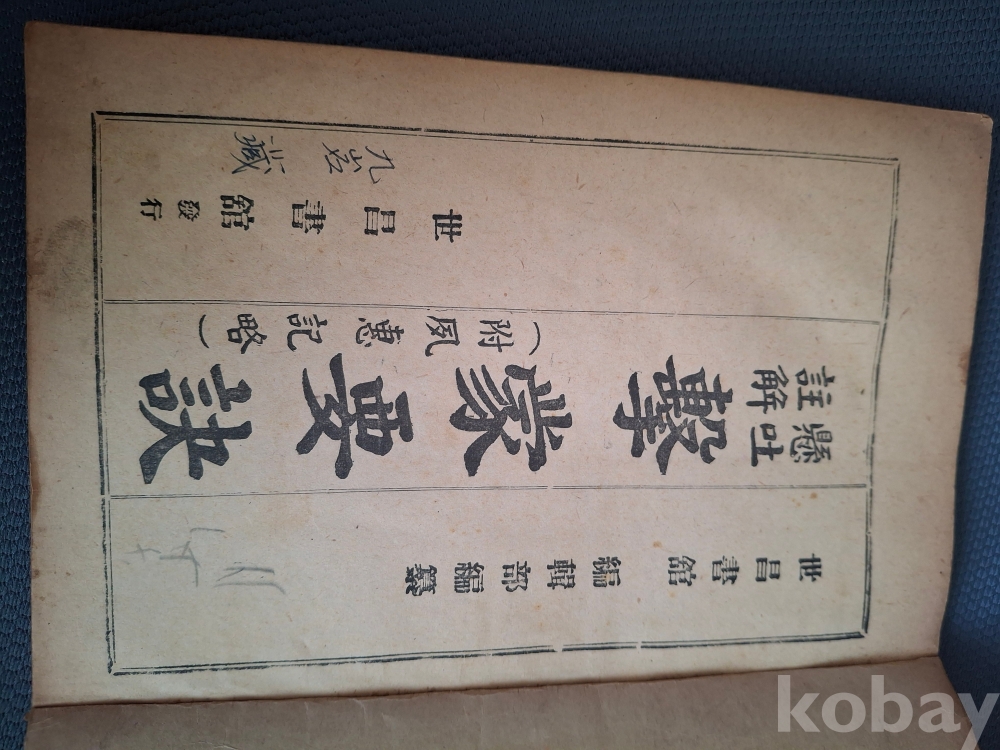 世昌書館 編輯部編纂
懸吐
註解
擊蒙要訣
(附夙惠記略)
世昌書館發行
九岩藏
kobay